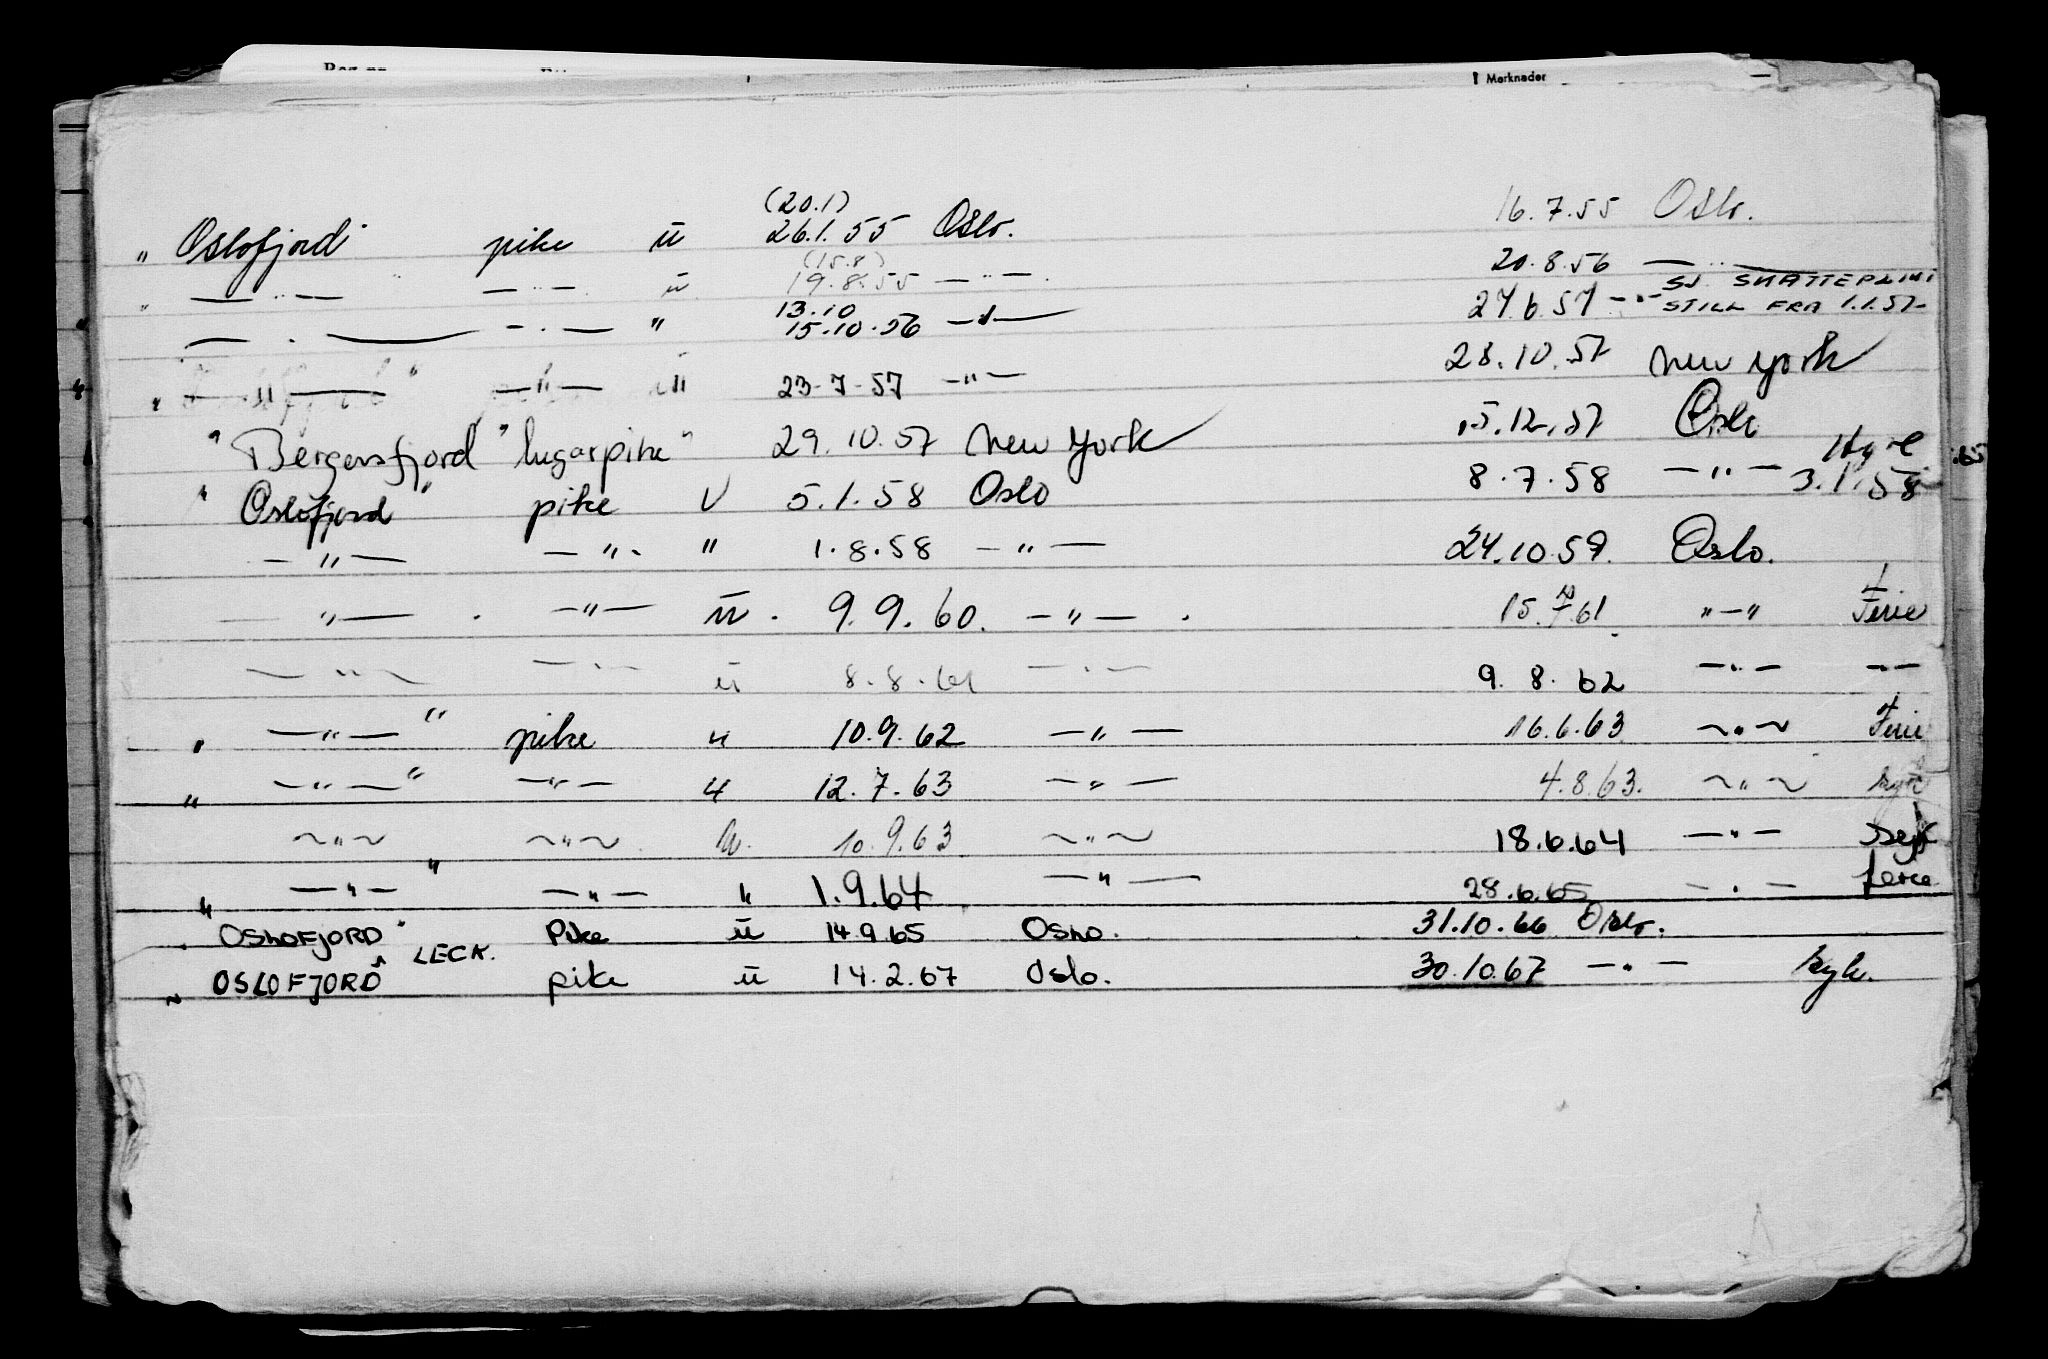 Merknader
" Oslofjord pike u (20.1) 26.1.55 Oslo. 16.7.55 Oslo.
" — " — — " — u (15.8) 19.8.55 — " — 20.8.56 — " —
— " — — " — " 13.10 15.10.56 — " — 27.6.57 — " — SJ. SKATTEPLIKT STILL FRA 1.1.57
" — " — " — " — " 23-7-57 — " — 28.10.57 New York
" Bergensfjord " lugarpike " 29.10.57 New York 15.12.57 Oslo
" Oslofjord " pike u 5.1.58 Oslo 8.7.58 — " — Hyre 3.1.58
— " — — " — " 1.8.58 — " — 24.10.59. Oslo.
— " — — " — u. 9.9.60. — " — 15.7.61 " — " Ferie
— " — — " — u 8.8.61 — " — 9.8.62 — " — — " —
" — " — " pike u 10.9.62 — " — 16.6.63 — " — Ferie
" — " — " — " — u 12.7.63 — " — 4.8.63. — " — syk
— " — — " — u. 10.9.63 — " — 18.6.64 — " —
" — " — " — " — " 1.9.64 — " — 28.6.65 — " — ferie
" OSLOFJORD " Pike u 14.9.65 OSLO. 31.10.66 Oslo.
" OSLOFJORD " LECK. pike u 14.2.67 Oslo. 30.10.67 — " — syk.